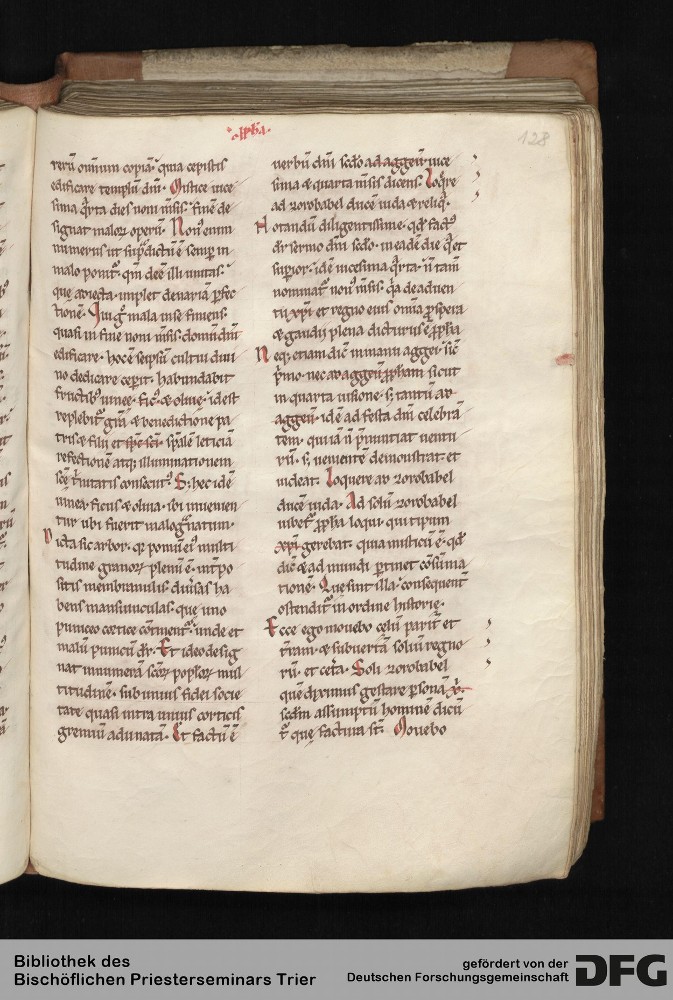 128
rerū omnium copia. quia cepistis
edificare templū dn̄i. Mistice uice
sima q̄rta dies noni m̄sis. finē de
signat malorꝝ operū. Non' enim
numerus ut sup̄dictū ē semꝑ in
malo ponit᷑. qm̄ deē illi unitas.
que adiecta. implet denariā ꝑfec
tionē. Qui g̊ mala in se finiens.
quasi in fine noni m̄sis. domū dn̄i
edificare. hoc ē seipsū cultui diui
no dedicare ceperit. habundabit
fructib' uinee. fic'. & oliuę. id est
replebit᷑ gr̄a & benedictione pa
tris & filii et sp̄c sc̄i. sp̄alē leticiā
refectionē atq; illuminationem
sc̄ę t̓nitatis consecut'. S; hec idē
uinea. ficus & oliua. ibi inuenien
tur ubi fuerit malogᷓnatum.
Dicta sic arbor. qr̄ pomū ei' multi
tudine granorꝝ plenū ē. int̓po
sitis membranulis. diu̓sas ha
bens mansiunculas. que uno
puniceo cortice cōtinent᷑. unde et
malū punicū dr̄. Et ideo desig
nat innumerā sc̄orꝝ popl̓orꝝ mul
titudinē. sub unius fidei socie
tate quasi intra unius corticis
gremiū adunatā. Et factū ē
uerbū dn̄i sc̄do ad aggeū uice
sima & quarta m̄sis dicens. Loq̄re
ad zorobabel ducē iuda & reliq̄.
Notandū diligentissime. qđ fact'
dr̄ sermo dn̄i sc̄do. in eadē die q̄ et
superior. idē uicesima q̄rta. n̄ tam̄
nominat᷑ non' m̄sis. q̄a de aduen
tu xp̄i et regno eius om̄ia ꝓspera
& gaudii plena dicturus ē ꝓph̄a
Neq; etiam dic̄ in manu aggei. sic̄
p̓mo. nec ad aggeū ꝓph̄am sicut
in quarta uisione. s; tantū ad
aggeū. idē ad festa dn̄i celebrā
tem. qui iā n̄ p̄nuntiat uentu
rū. s; uenientē demonstrat. et
uideat. Loquere ad zorobabel
ducē iuda. Ad solū zorobabel
iubet᷑ ꝓph̄a loqui. qui tipum
xp̄i gerebat. quia misticū ē. qđ
dic̄ & ad mundi ꝑtinet cōsūma
tionē. Que sint illa. consequent̓
ostendit᷑ in ordine historię.
Ecce ego mouebo celū parit̓ et
t̓ram. & subuertā soliū regno
rū. et cet̓a. Soli zorobabel
quē diximus gestare ꝑsonā x̄.
sc̄dm̄ assumptū hominē dicū
t᷑ quę factura st̄. Mouebo
Bibliothek des
Bischöflichen Priesterseminars Trier
gefördert von der
Deutschen Forschungsgemeinschaft
DFG